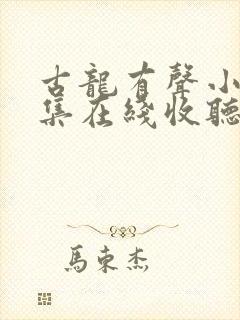 古龍有聲小
集在綫收聽
馬東杰